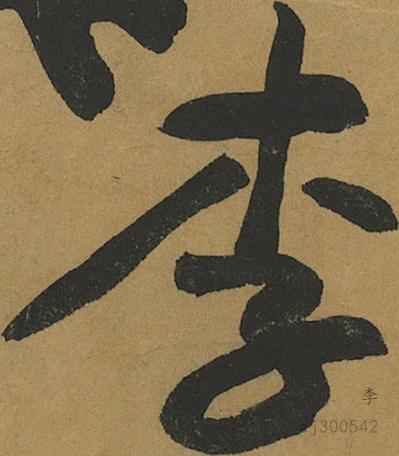 李
李
j300542